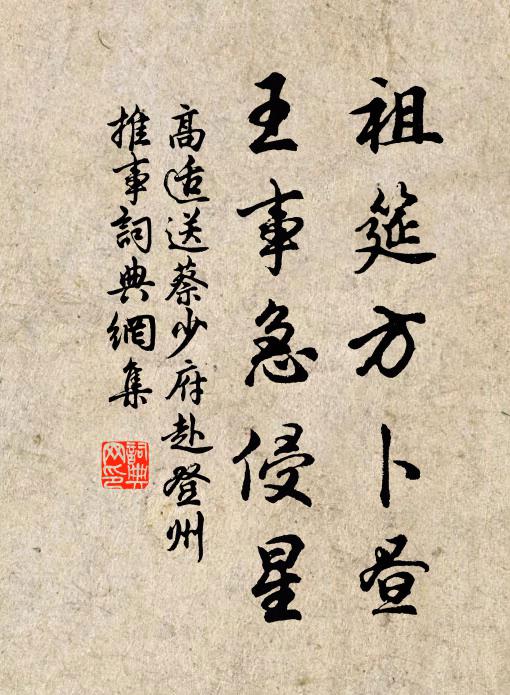 祖筵方卜昼
王事急侵星
高适送蔡少府赴登州
推事詞典網集
詞典网印